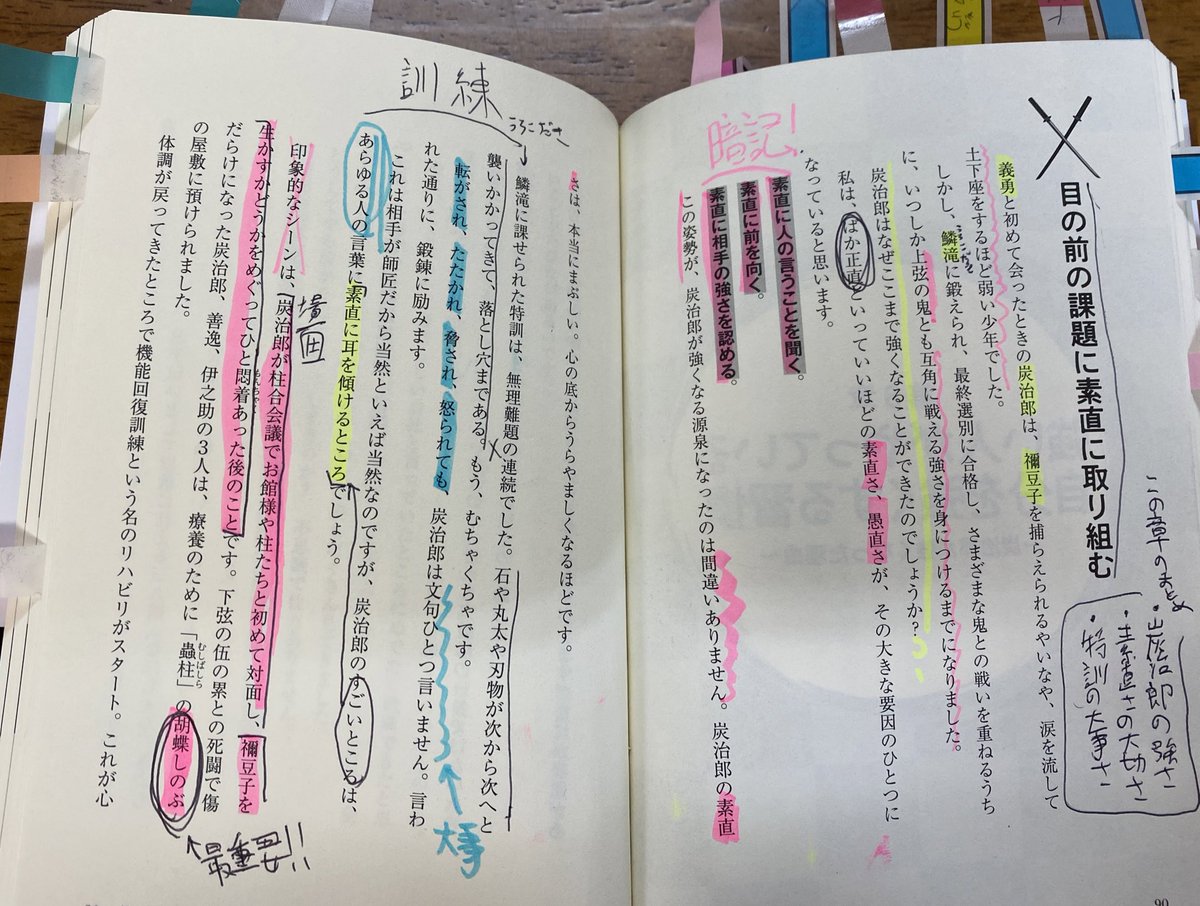 目の前の課題に素直に取り組む
この章のまとめ
・炭治郎の強さ
・素直さの大切さ
・特訓の大事さ
義勇と初めて会ったときの炭治郎は、禰豆子を捕らえられるやいなや、涙を流して
土下座をするほど弱い少年でした。
しかし、鱗滝に鍛えられ、最終選別に合格し、さまざまな鬼との戦いを重ねるうち
に、いつしか上弦の鬼とも互角に戦える強さを身につけるまでになりました。
炭治郎はなぜここまで強くなることができたのでしょうか?
私は、ばか正直といっていいほどの素直さ、愚直さが、その大きな要因のひとつに
なっていると思います。
暗記!
素直に人の言うことを聞く。
素直に前を向く。
素直に相手の強さを認める。
この姿勢が、炭治郎が強くなる源泉になったのは間違いありません。炭治郎の素直
90
さは、本当にまぶしい。心の底からうらやましくなるほどです。
訓練
うろこださ
鱗滝に課せられた特訓は、無理難題の連続でした。石や丸太や刃物が次から次へと
襲いかかってきて、落とし穴まである。もう、むちゃくちゃです。
転がされ、たたかれ、脅され、怒られても、炭治郎は文句ひとつ言いません。言わ
れた通りに、鍛錬に励みます。
大事
これは相手が師匠だから当然といえば当然なのですが、炭治郎のすごいところは、
あらゆる人の言葉に素直に耳を傾けるところでしょう。
場面
印象的なシーンは、炭治郎が柱合会議でお館様や柱たちと初めて対面し、禰豆子を
生かすかどうかをめぐってひと悶着あった後のことです。下弦の伍の累との死闘で傷
もんちゃく
だらけになった炭治郎、善逸、伊之助の3人は、療養のために「蟲柱」の胡蝶しのぶ
むしばしら
最重要!!
の屋敷に預けられました。
体調が戻ってきたところで機能回復訓練という名のリハビリがスタート。これが心